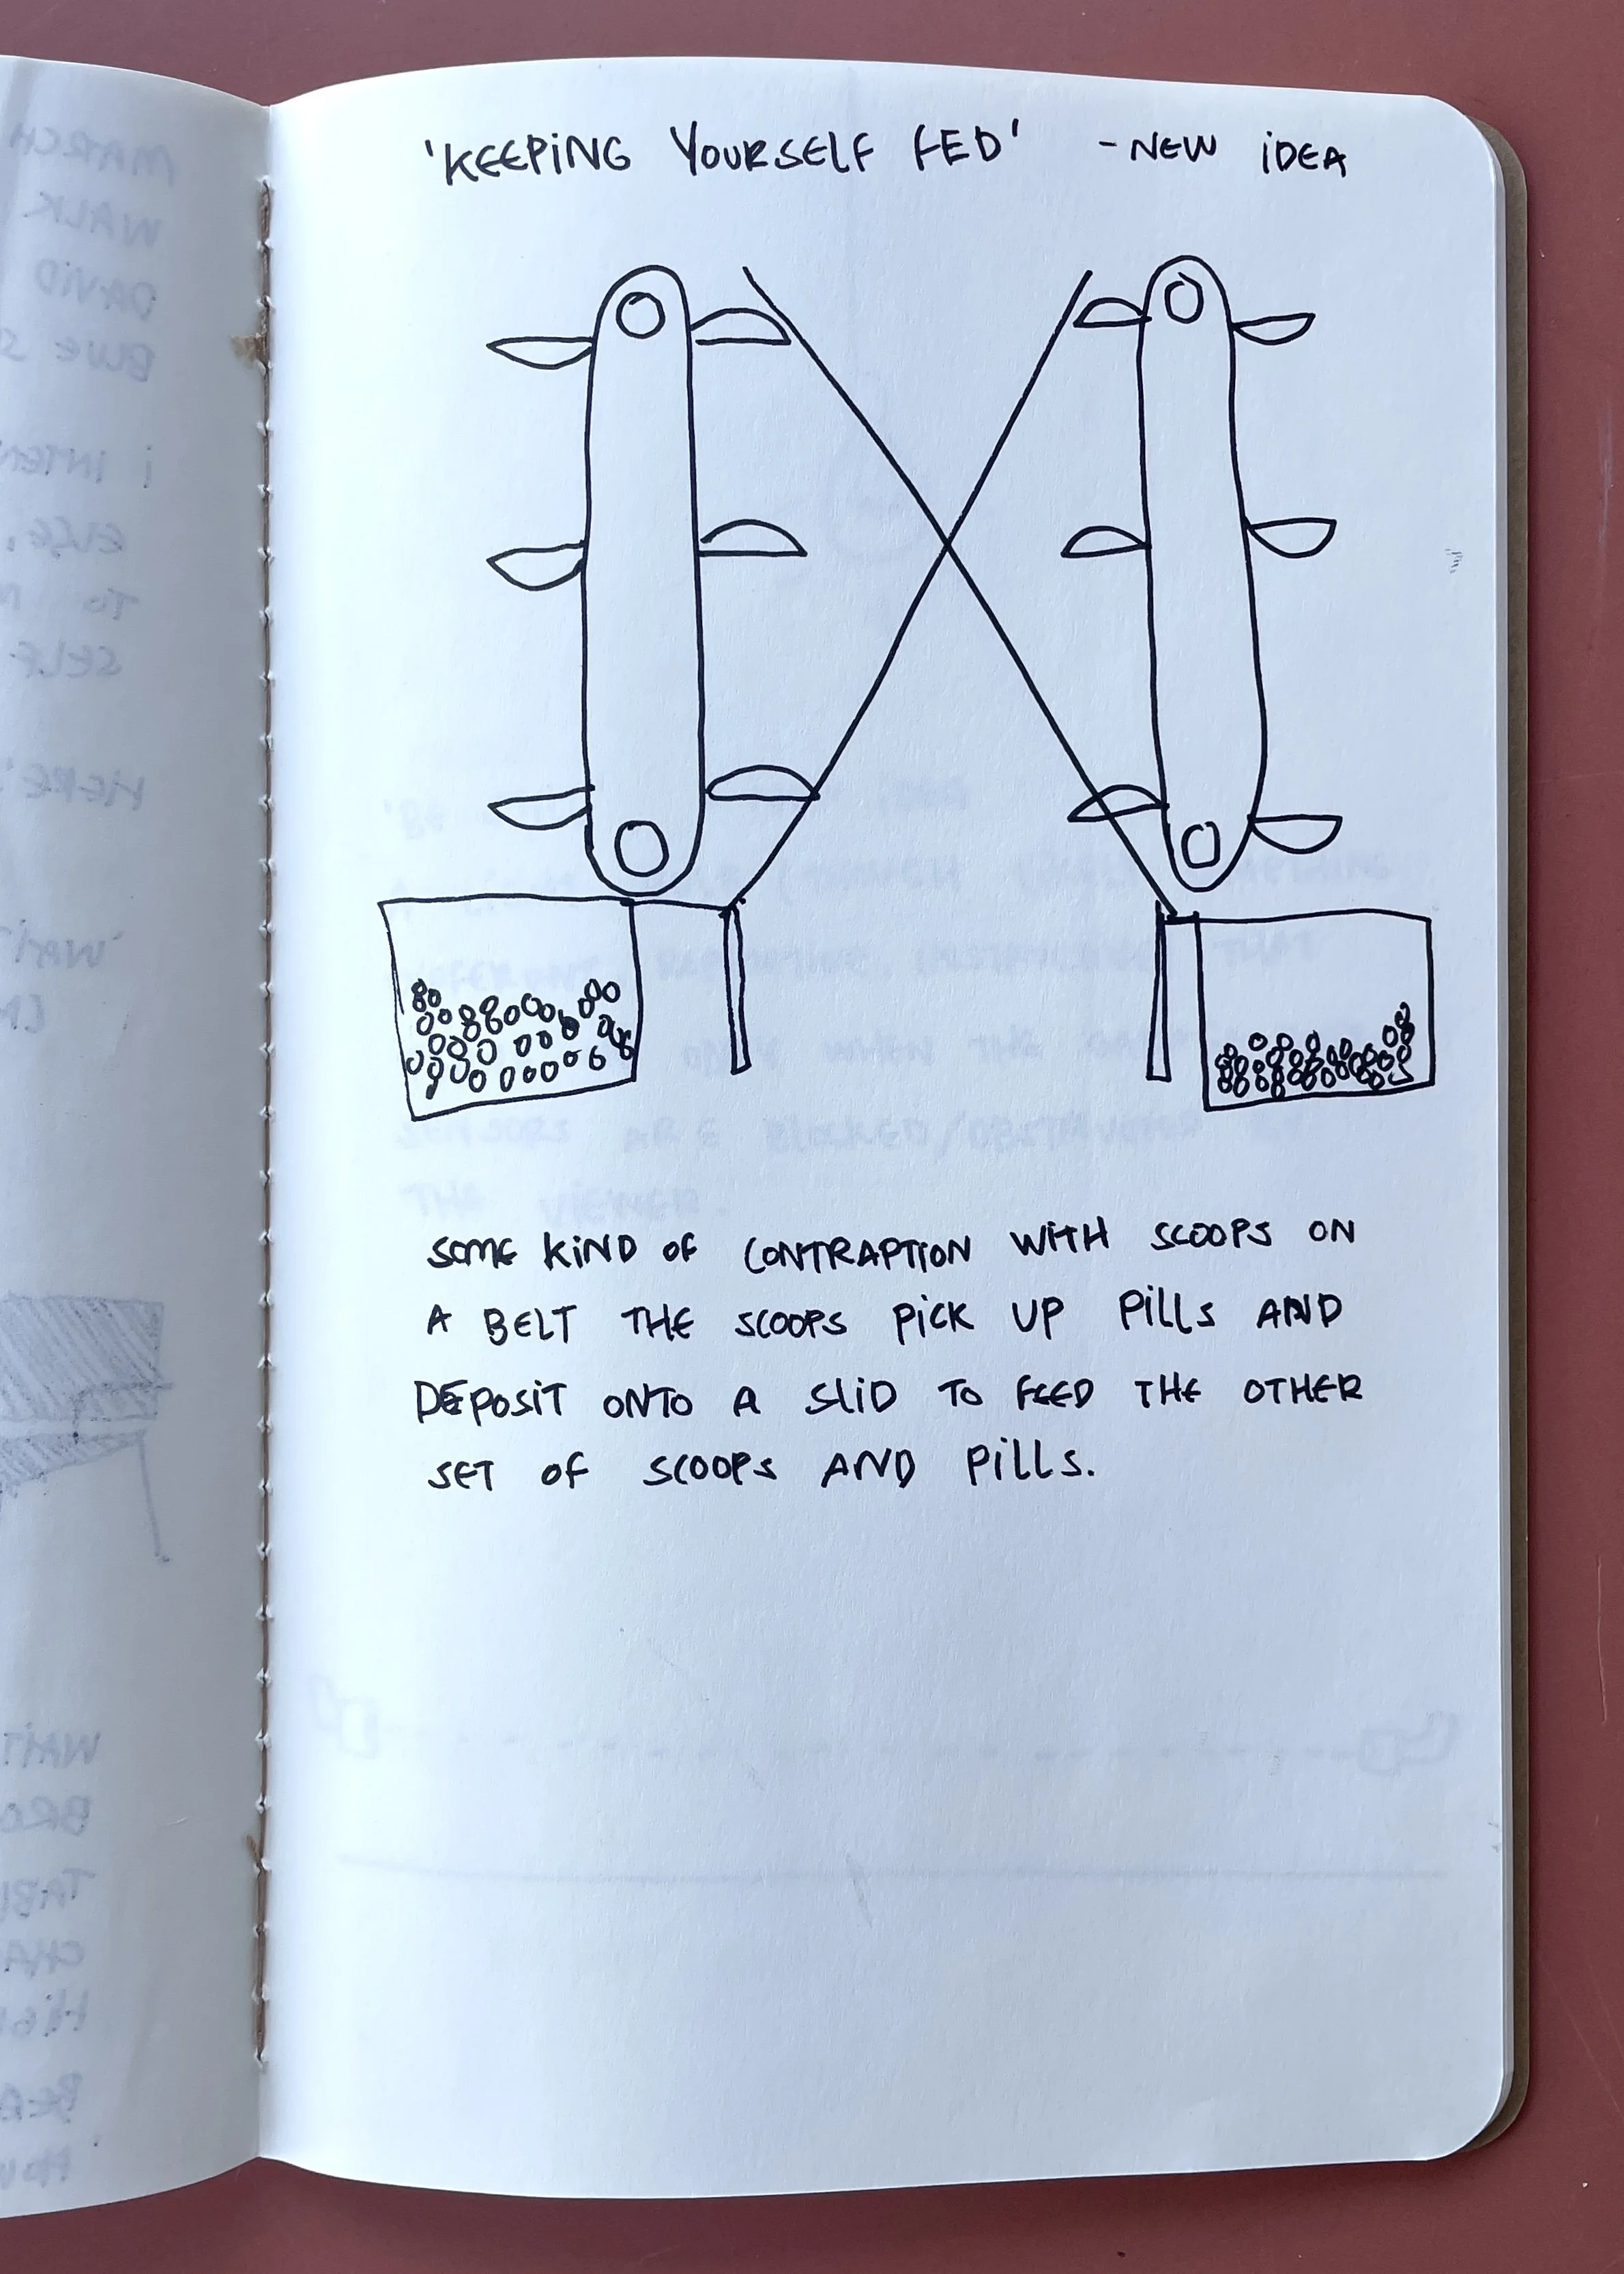 'KEEPING YOURSELF FED' - NEW IDEA
SOME KIND OF CONTRAPTION WITH SCOOPS ON
A BELT THE SCOOPS PICK UP PILLS AND
DEPOSIT ONTO A SLID TO FEED THE OTHER
SET OF SCOOPS AND PILLS.